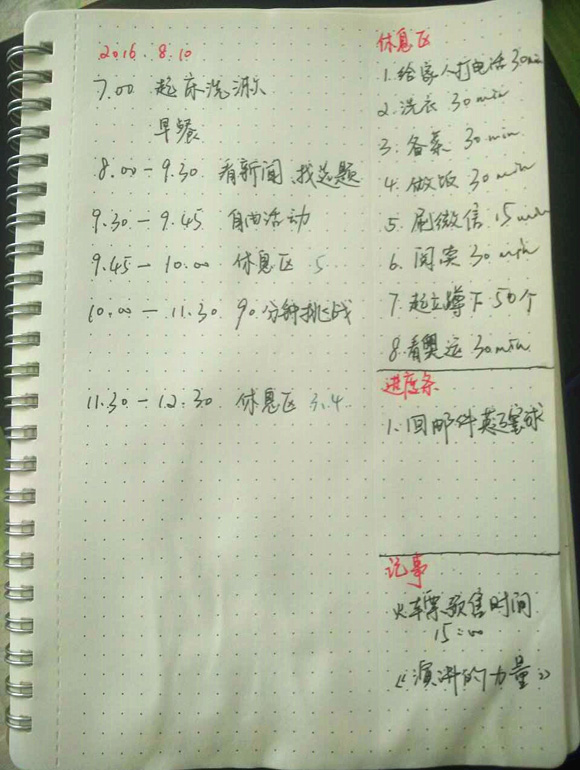 2016.8.10
7.00 起床洗漱
早餐
8.00-9.30 看新闻、找选题
9.30-9.45 自由活动
9.45-10.00 休息区 5
10.00-11.30 90分钟挑战
11.30-12.30 休息区 3.4
休息区
1. 给家人打电话 30min
2. 洗衣 30min
3. 备菜 30min
4. 做饭 30min
5. 刷微信 15min
6. 阅读 30min
7. 起立蹲下 50个
8. 看奥运 30min
进度条
1. 回邮件
记事
火车票预售时间
15:00
《演讲的力量》